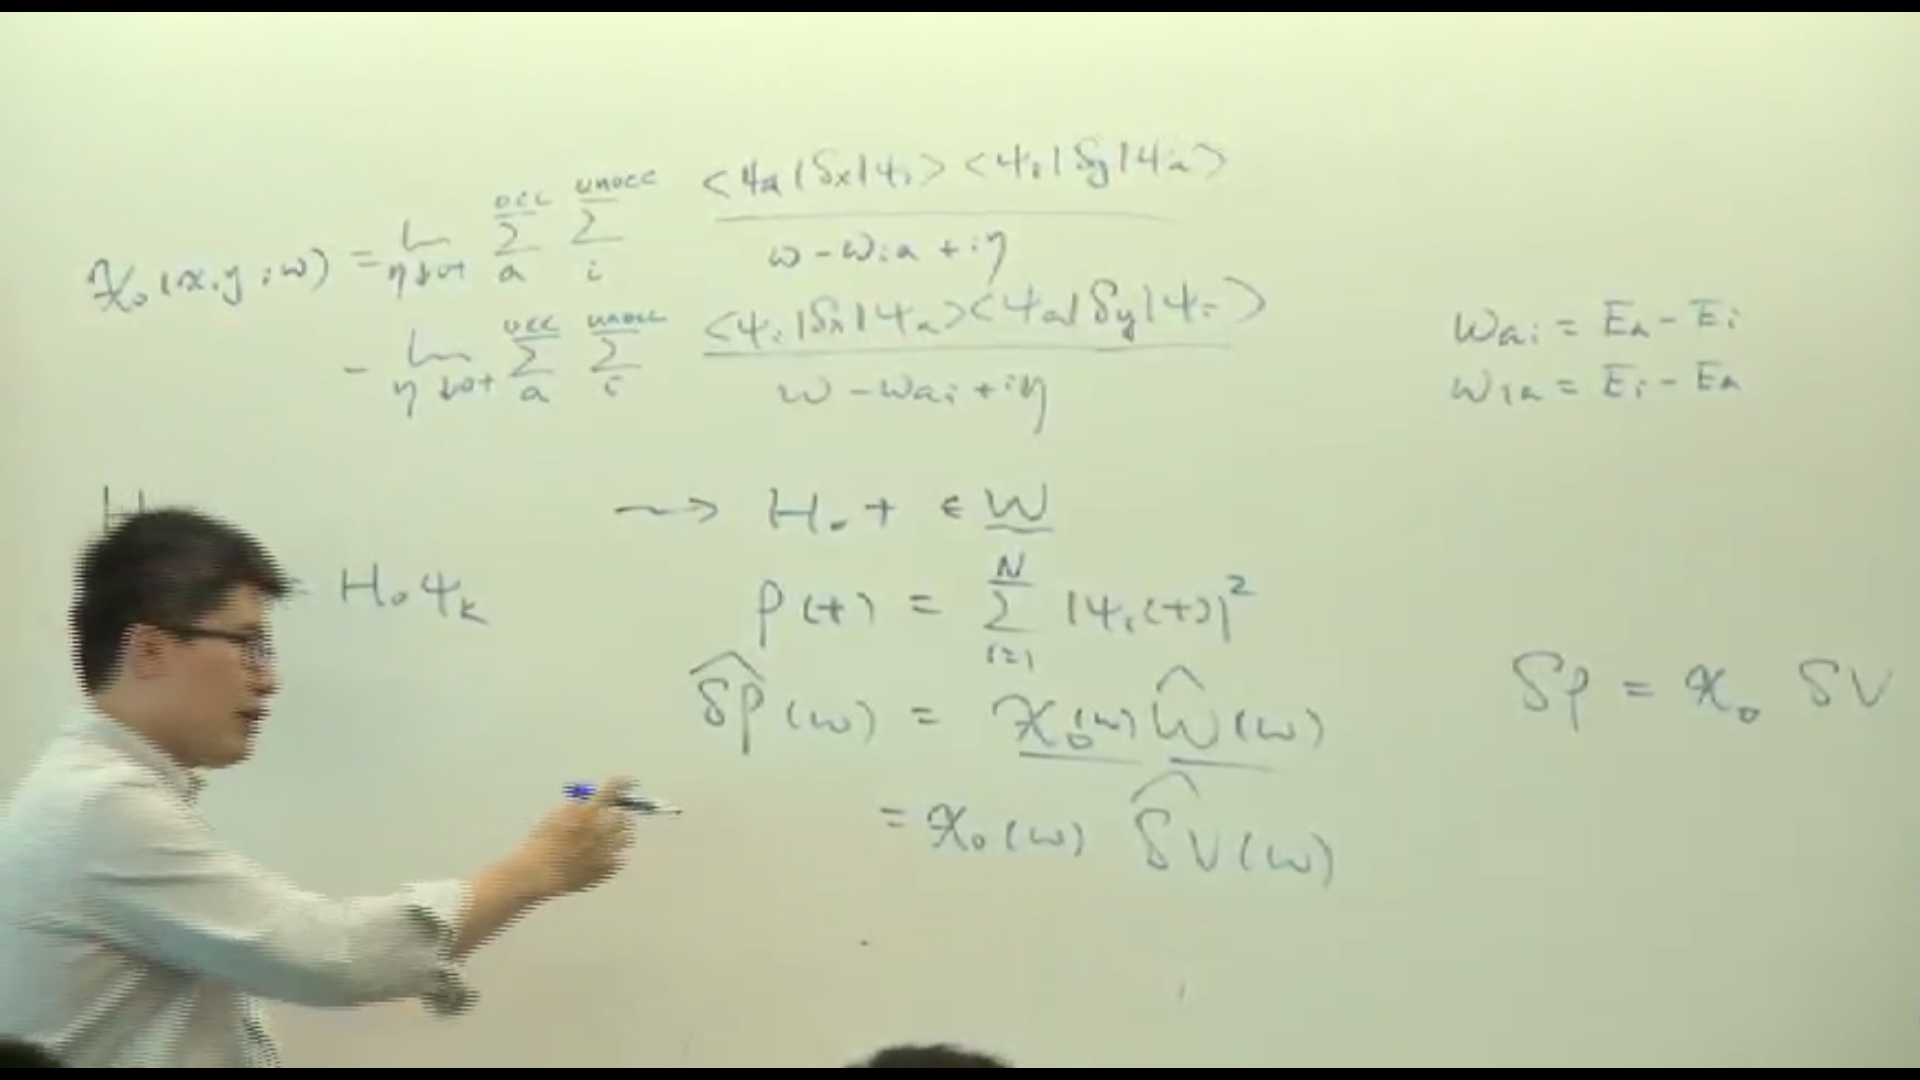 χ₀(x,y;ω) = lim η↓0+ Σ_a^occ Σ_i^unocc <ψa|δx|ψi><ψi|δy|ψa> / ω-ωia+iη
- lim η↓0+ Σ_a^occ Σ_i^unocc <ψi|δx|ψa><ψa|δy|ψi> / ω-ωai+iη
ωai = Ea - Ei
ωia = Ei - Ea
H
⇝ H₀ + ϵW
= H₀ψk
ρ(t) = Σ_{i=1}^N |ψi(t)|²
δρ̂(ω) = χ₀(ω) Ŵ(ω)
δρ = χ₀ δV
= χ₀(ω) δV̂(ω)